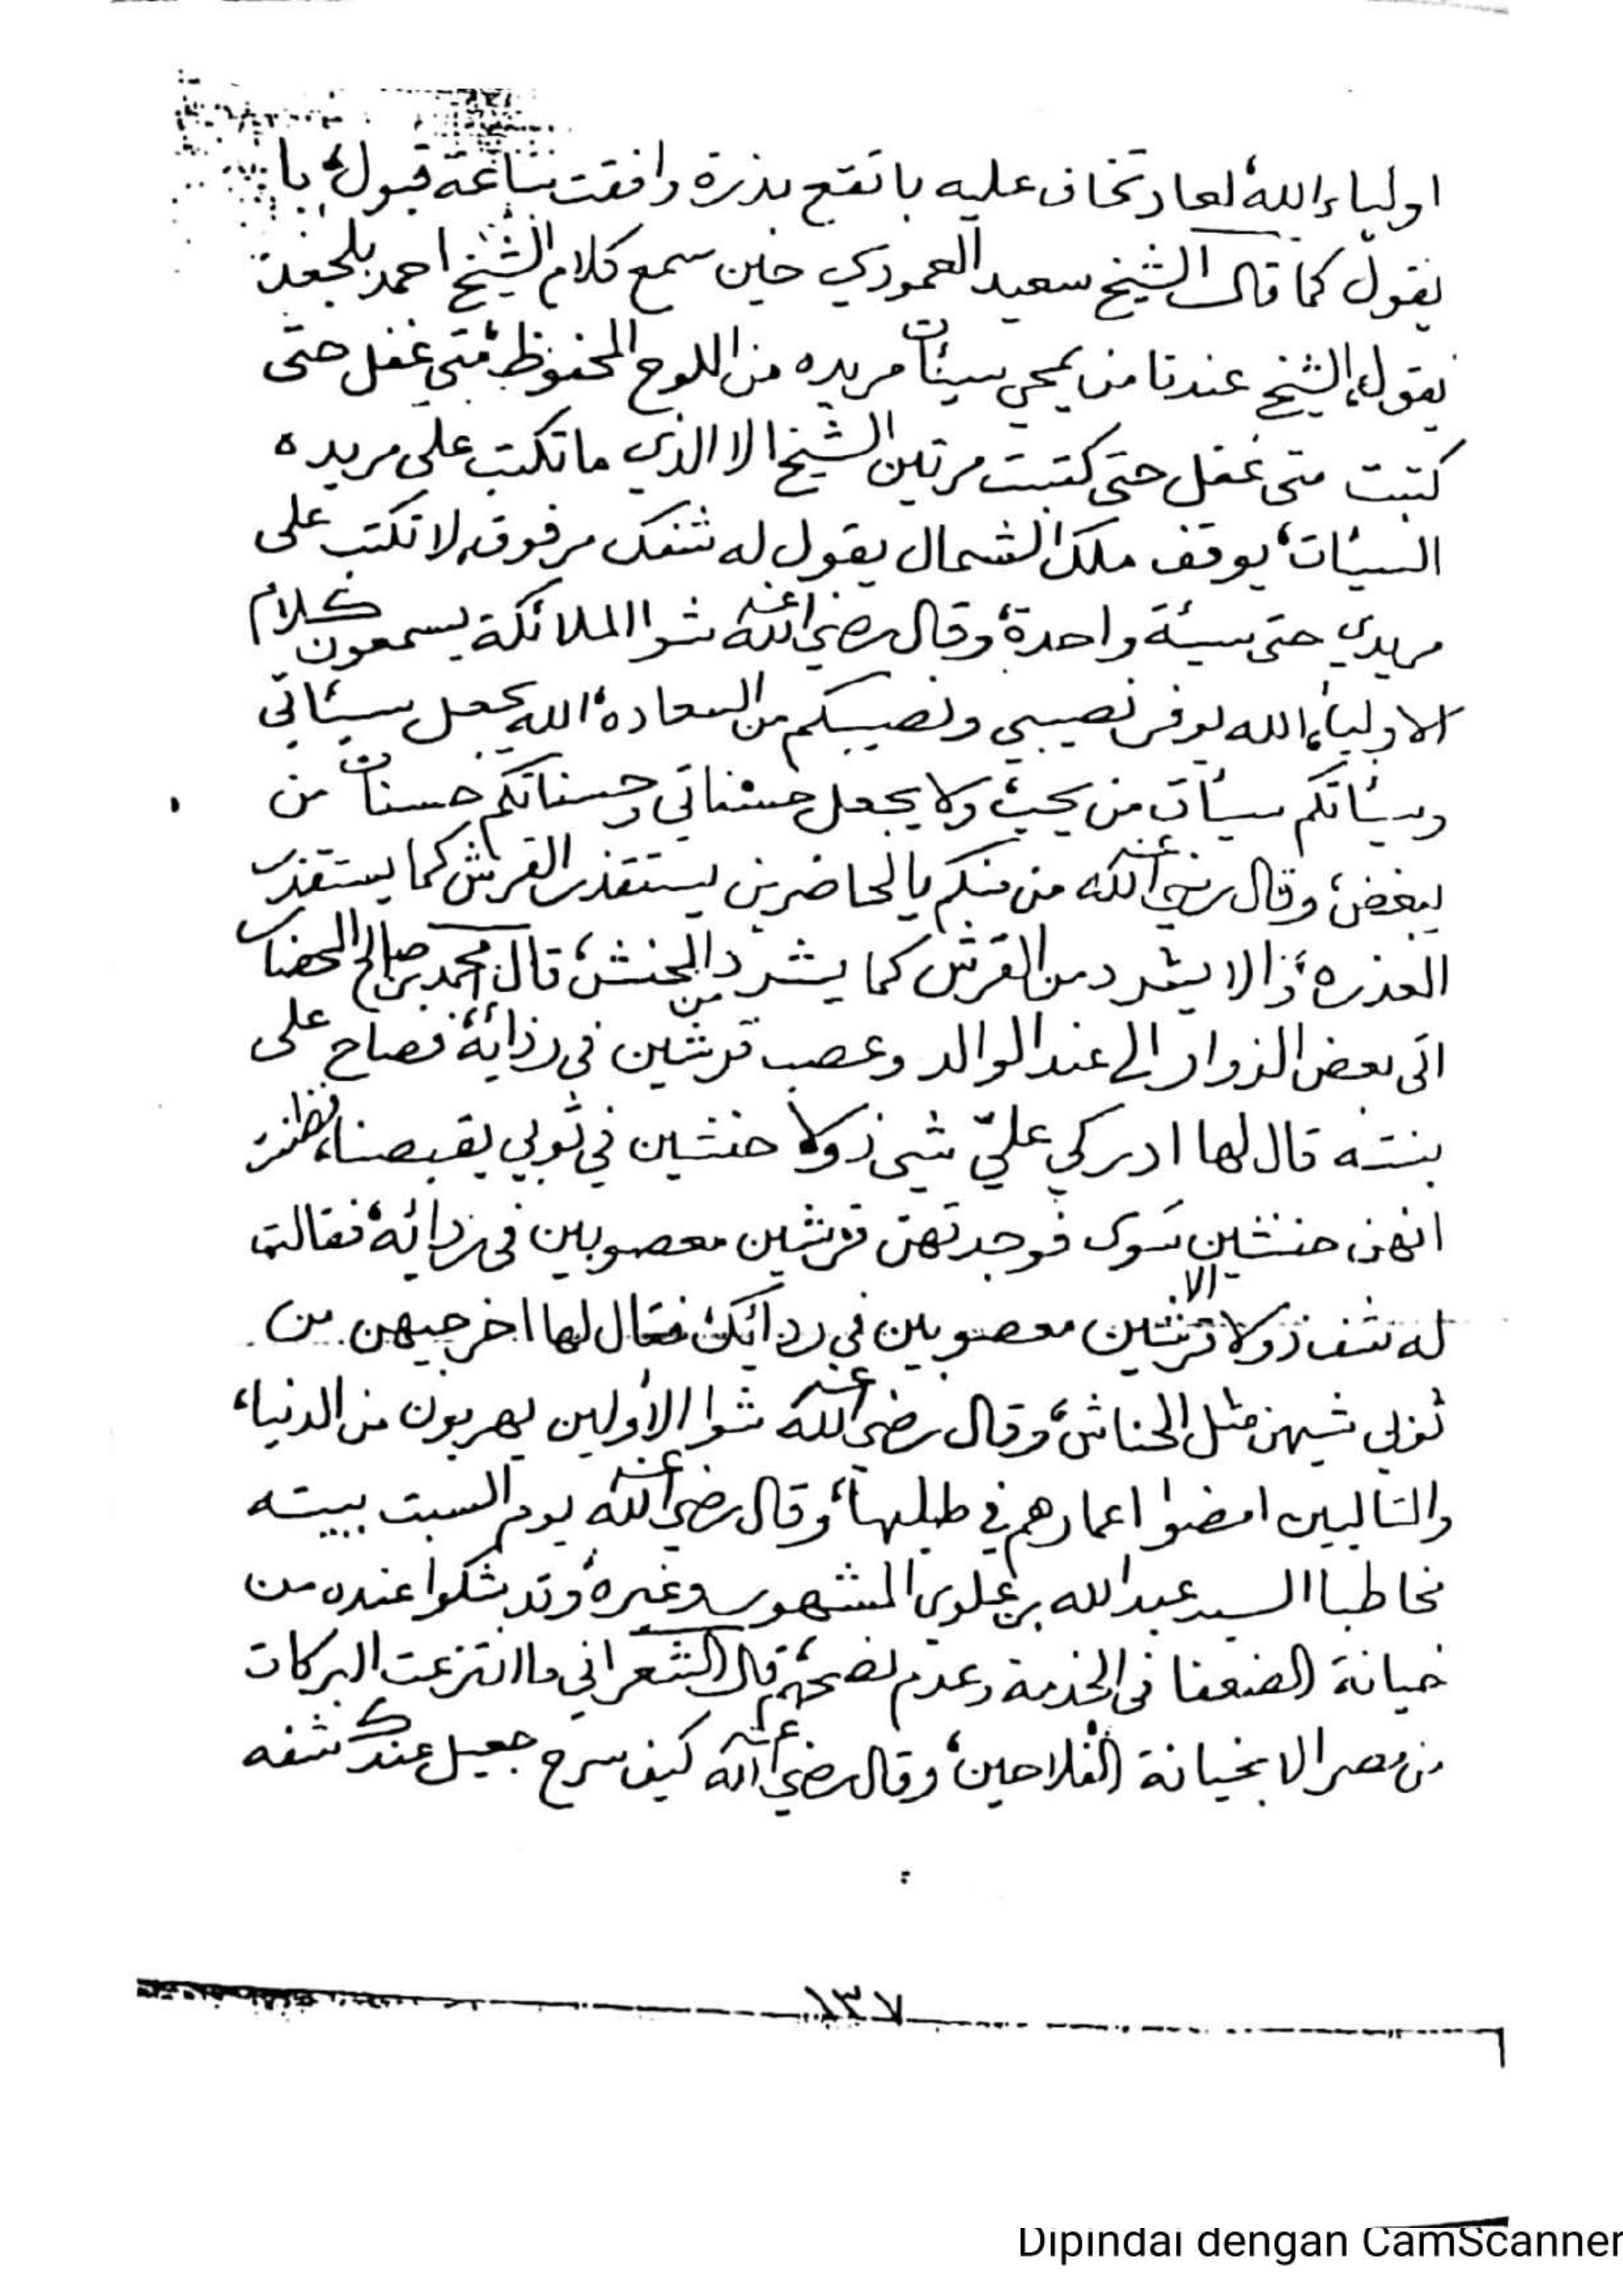 اولياء الله، لعاد تخاف عليه با تقع بذرة وافقت ساعة قبول، با
نقول كما قال الشيخ سعيد العمودي حين سمع كلام الشيخ احمد بلجعد
يقول، الشيخ عندنا من يمحي سيئات مريده من اللوح المحفوظ، متى غفل حتى
كتبت متى غفل حتى كتبت مرتين الشيخ الا الذي ما تكتب على مريده
السيئات، يوقف ملك الشمال يقول له شفك مرفوق لا تكتب على
مريدي حتى سيئة واحدة، وقال رضي الله عنه شوا الملائكة يسمعون كلام
الاولياء، الله يوفر نصيبي ونصيبكم من السعاده، الله يجعل سيئاتي
وسيئاتكم سيئات من يحب، ولا يجعل حسناتي وحسناتكم حسنات من
يبغض، وقال رضي الله عنه من منكم يا لحاضرين يستقذر القرش كما يستقذر
العذره، ذا لا يشرد من القرش كما يشرد من الحنش، قال محمد بن صالح
اتى بعض الزوار الى عند الوالد وعصب قرشين في ردائه، فصاح على
بنته قال لها ادركي عليّ شي ذولا حنشين في ثوبي يقبصنا، فظنت
انهن حنشين سوى فوجدتهن قرشين معصوبين في ردائه، فقالت
له شف ذولا الا قرشين معصوبين في ردائك، فقال لها اخرجيهن من
ثوبي شهن مثل الحناش، وقال رضي الله عنه شوا الأولين يهربون من الدنيا،
والتاليين امضوا اعمارهم في طلبها، وقال رضي الله عنه يوم السبت ببيته
مخاطبا السيد عبد الله بن علوي المشهور وغيره، وقد شكوا عنده من
خيانة الضعفا في الخدمة وعدم نصحهم، قال الشعراني ما انتزعت البركات
من مصر الا بخيانة الفلاحين، وقال رضي الله عنه كيف سرح جعيل عندك شفه
١٣٧
Dipindai dengan CamScanner